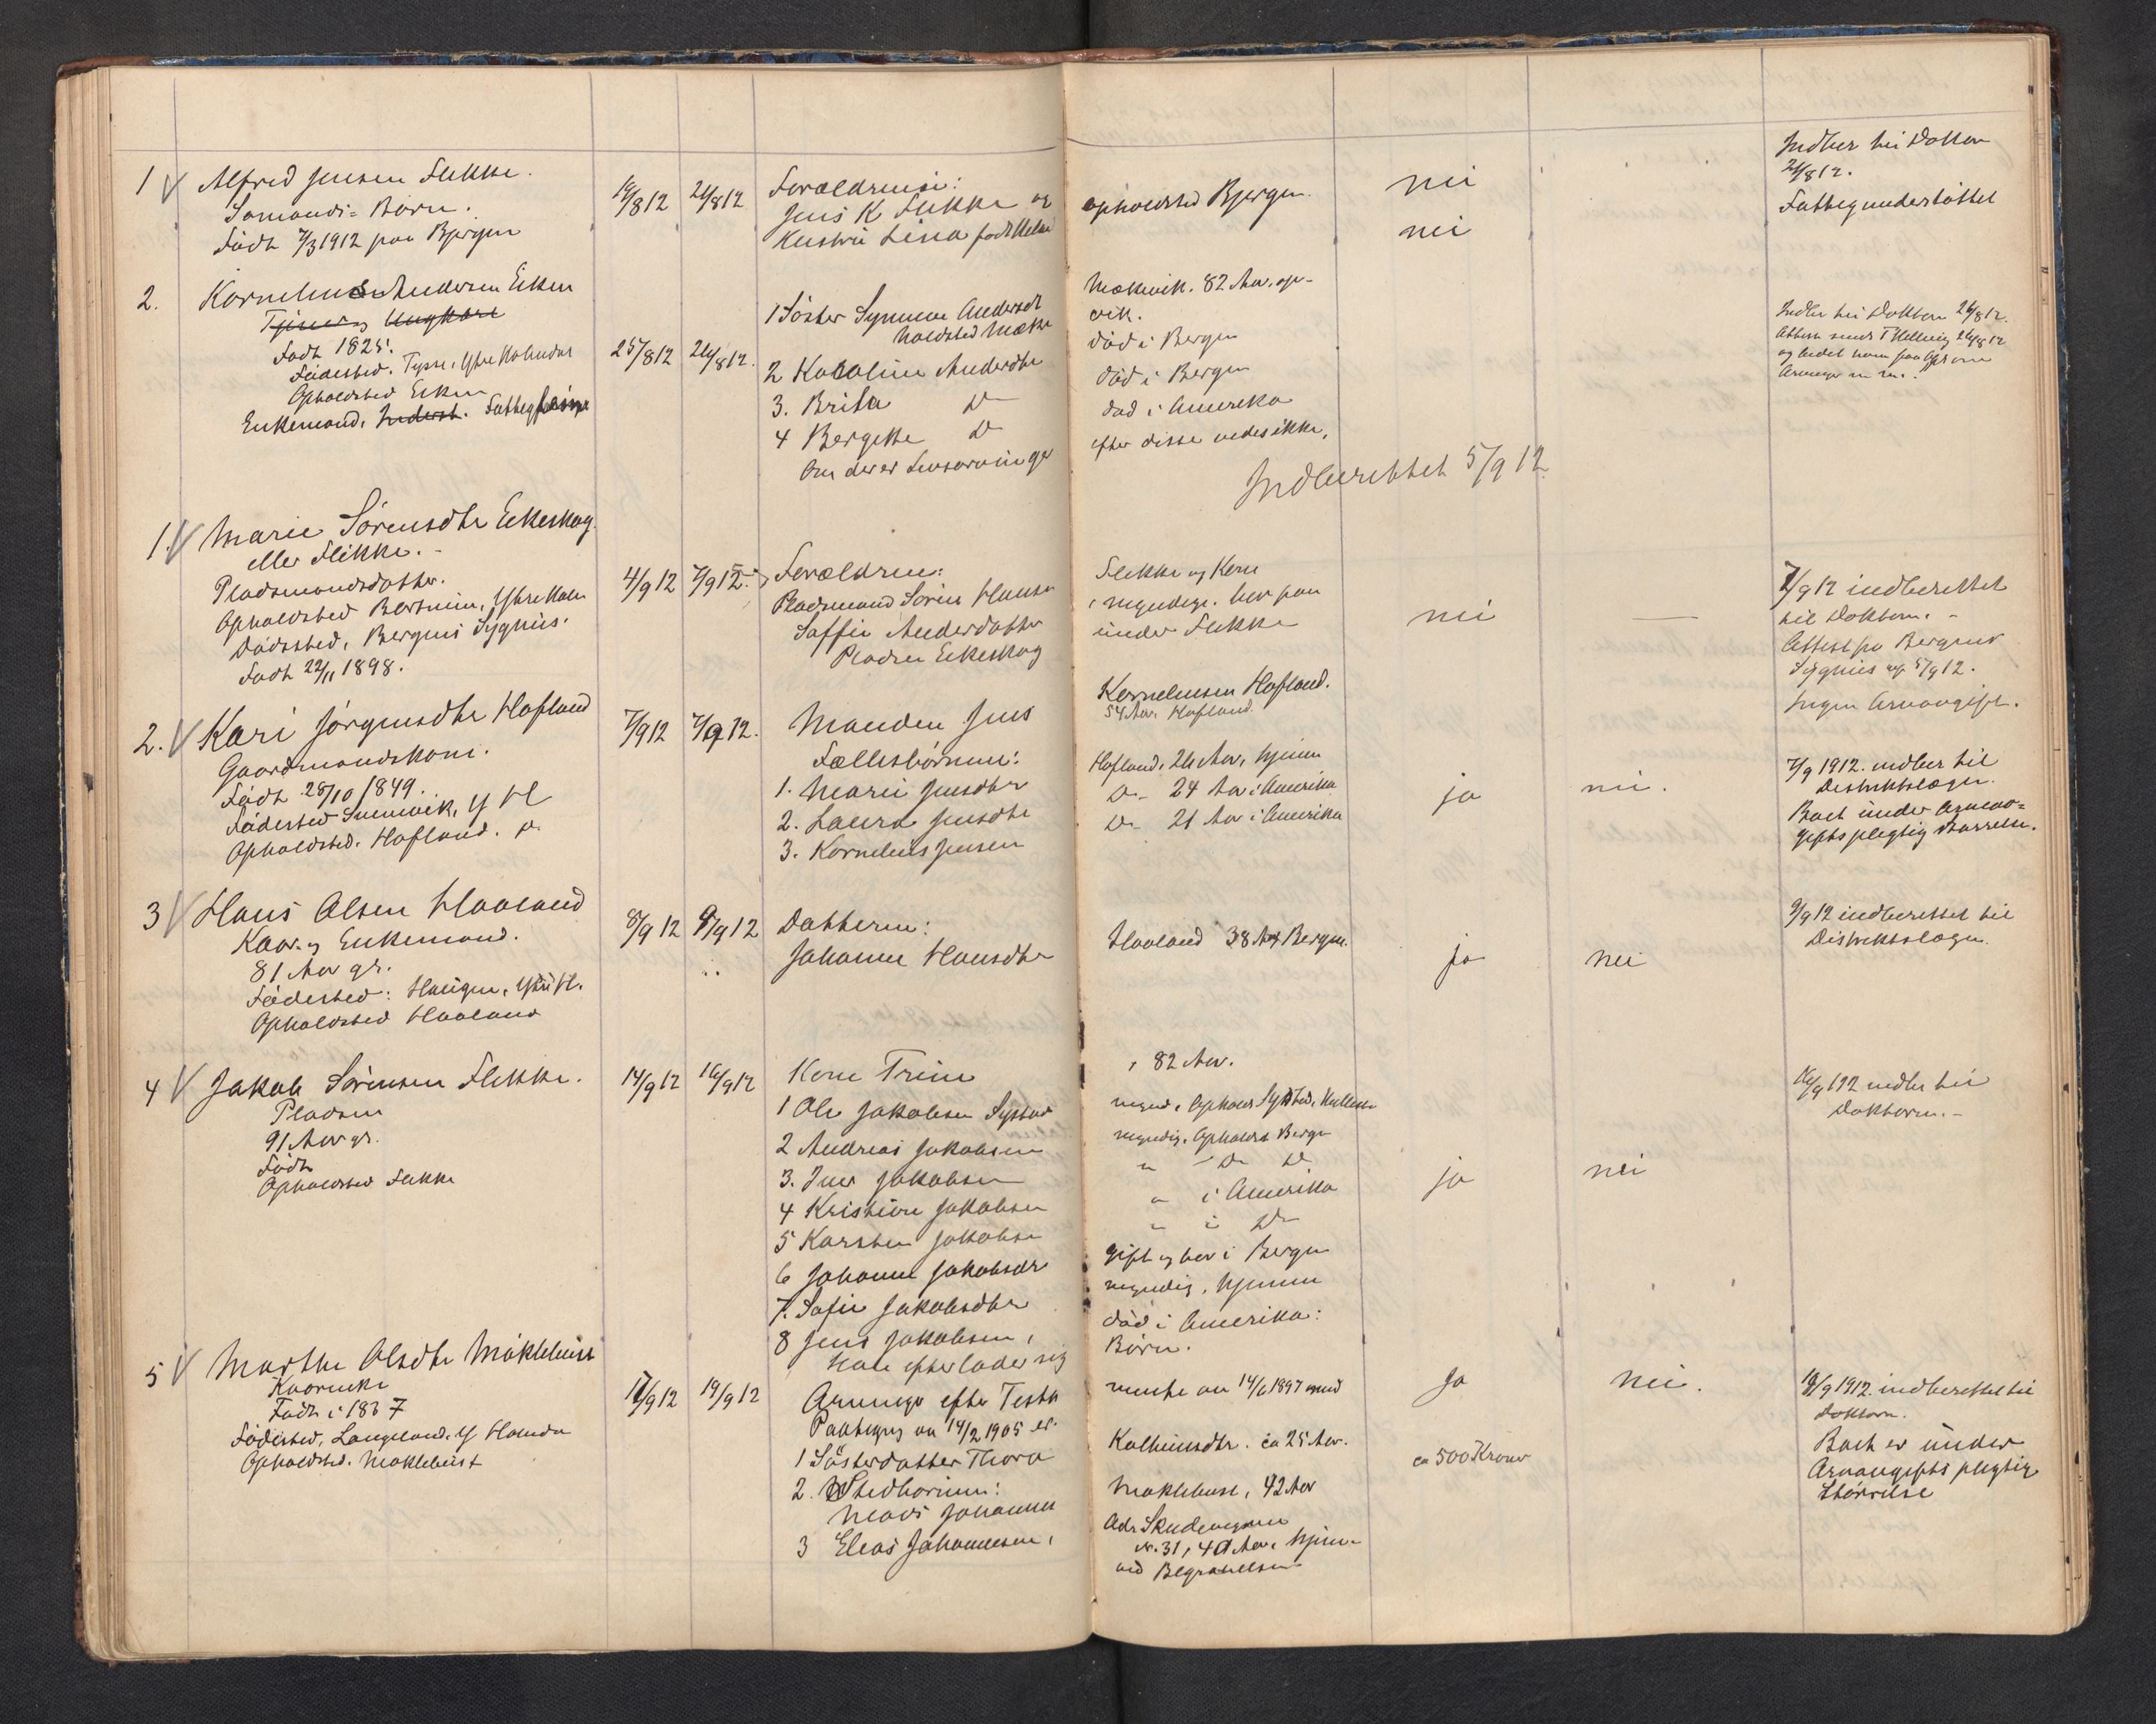 1 Alfred Jensen Flekke.
Sømands-Barn.
Født 7/3 1912 paa Bergen
19/8 12 24/8 12
Forældrene:
Jens K Flekke og
Lina født
opholdssted Bergen.
nei
nei
Indber til Doktor
24/8 12.
Fattigunderstøttet
2. Kornelius Andersen Eiken
Tjener, Ungkarl
Født 1825.
Fødested. Tysse, Ytre Holmedal
Opholdssted Eiken
Enkemand, Inderst. Fattig
25/8 12 26/8 12.
1 Søster Synneve Andersdt
holdssted Mække
2 Karoline Andersdtr
3. Brita Do
4 Bergitte Do
Om der er Livsarvinger
Mækevik. 82 Aar. op-
vik.
død i Bergen
død i Bergen
død i Amerika
efter disse vides ikke.
Indber til Doktor 26/8 12.
Attest sendt 26/8 12
Indberettet 5/9 12.
1. Marie Sørensdtr Eikeskog
eller Flekke.
Pladsmandsdatter.
Opholdssted Ytre Holm
Dødssted, Bergens Sygehus.
Født 22/11 1898.
4/9 12 7/9 12.
Forældrene:
Pladsmand Søren Hansen
Saffie Andersdatter
Pladsen Eikeskog
Flekke og Kone
myndige. bor paa
under Flekke
nei
—
7/9 12 indberettet
til Doktoren.
Attest fra Bergens
Sygehus af 5/9 12.
Ingen Arveavgift.
2. Kari Jørgensdtr Hafland
Gaardmandskone.
Født 28/10 1849.
Fødested Y H
Opholdssted. Hafland. Do
7/9 12 7/9 12.
Manden Jens
Fællesbørnene:
1. Marie Jensdtr
2. Laura Jensdtr
3. Kornelius Jensen
Korneliussen Hafland.
54 Aar. Hafland.
Hafland, 26 Aar, hjemme
Do 24 Aar i Amerika
Do 21 Aar i Amerika
ja
nei.
7/9 1912. indber til
Distriktslægen.
Boet under Arveav-
giftspligtig Størrelse.
3 Hans Olsen Haaland
Kaar og Enkemand.
81 Aar gl.
Fødested: Haugen, Ytre H.
Opholdssted Haaland
8/9 12 9/9 12
Datteren:
Johanne Hansdtr
Haaland 38 Aar Bergen.
ja
nei
9/9 12 indberettet til
Distriktslægen.
4 Jakob Sørensen Flekke.
Pladsm
91 Aar gl.
Født
Opholdssted Flekke
14/9 12 16/9 12
Kone Trine
1 Ole Jakobsen Systad
2 Andreas Jakobsen
3. Iver Jakobsen
4 Kristian Jakobsen
5 Karsten Jakobsen
6 Johanne Jakobsdtr
7. Sofie Jakobsdtr
8 Jens Jakobsen,
Han efterlader sig
, 82 Aar.
mynd, Ophold Systad,
myndig, Opholdst Bergen
" Do Do
" i Amerika
" i Do
gift og bor i Bergen
myndig, hjemme
død i Amerika:
Børn.
ja
nei
16/9 1912 indber til
Doktoren.
5 Marthe Olsdtr Møklebust
Kaarenke
Født i 1837
Fødested, Langeland, Y Holmedal
Opholdssted. Møklebust
17/9 12 19/9 12
Arvinger efter Testa
Paategng av 14/2 1905 er
1 Søsterdatter Thora
2. Stedbørnene:
Mons Johannes
3 Elias Johannesen,
mente av 14/6 1897 med
ca 25 Aar.
Møklebust, 42 Aar
Adr Skudeviken
No. 31, 40 Aar, hjem-
ved Begravelsen
Ja
ca 500 Kroner
nei.
19/9 1912. indberettet til
Doktoren.
Boet er under
Arveavgifts pligtig
Størrelse